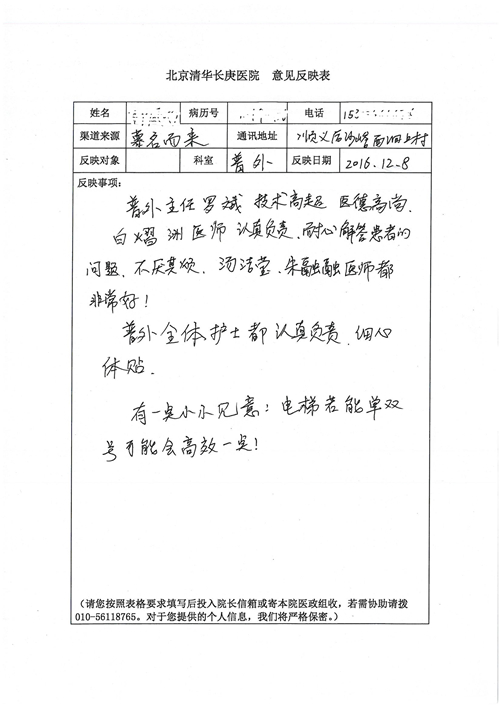 北京清华长庚医院 意见反映表
姓名 病历号 电话 153
渠道来源 慕名而来 通讯地址 顺义区 西 村
反映对象 科室 普外 反映日期 2016.12.8
反映事项：
普外主任罗斌 技术高超 医德高尚.
白熠洲医师 认真负责.耐心解答患者的
问题.不厌其烦. 汤洁莹.朱融融医师都
非常好！
普外全体护士都认真负责.细心
体贴.
有一点小小见意：电梯若能单双
号可能会高效一点！
（请您按照表格要求填写后投入院长信箱或寄本院医政组收，若需协助请拨
010-56118765。对于您提供的个人信息，我们将严格保密。）